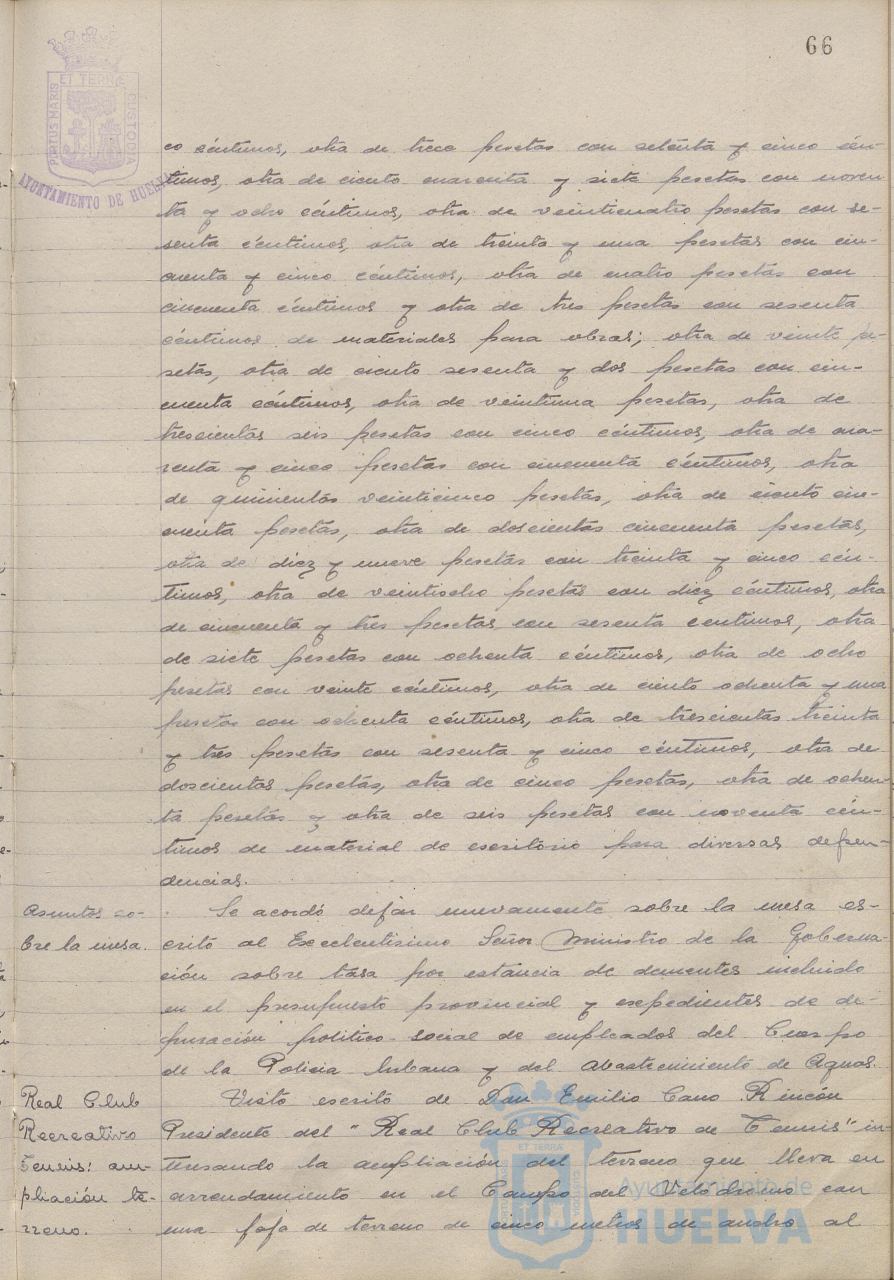 66
PORTUS MARIS ET TERRÆ CUSTODIA
AYUNTAMIENTO DE HUELVA
co céntimos, otra de trece pesetas con setenta y cinco cén-
timos, otra de ciento cuarenta y siete pesetas con noven-
ta y ocho céntimos, otra de veinticuatro pesetas con se-
senta céntimos, otra de treinta y una pesetas con cin-
cuenta y cinco céntimos, otra de cuatro pesetas con
cincuenta céntimos y otra de tres pesetas con sesenta
céntimos de materiales para obras; otra de veinte pe-
setas, otra de ciento sesenta y dos pesetas con cin-
cuenta céntimos, otra de veintiuna pesetas, otra de
trescientas seis pesetas con cinco céntimos, otra de cua-
renta y cinco pesetas con cincuenta céntimos, otra
de quinientas veinticinco pesetas, otra de ciento cin-
cuenta pesetas, otra de doscientas cincuenta pesetas,
otra de diez y nueve pesetas con treinta y cinco cén-
timos, otra de veintiocho pesetas con diez céntimos, otra
de cincuenta y tres pesetas con sesenta centimos, otra
de siete pesetas con ochenta céntimos, otra de ocho
pesetas con veinte céntimos, otra de ciento ochenta y una
pesetas con ochenta céntimos, otra de trescientas treinta
y tres pesetas con sesenta y cinco céntimos, otra de
doscientas pesetas, otra de cinco pesetas, otra de ochen-
ta pesetas y otra de seis pesetas con noventa cén-
timos de material de escritorio para diversas depen-
dencias.
Asuntos so-
bre la mesa.
Se acordó dejar nuevamente sobre la mesa es-
crito al Excelentisimo Señor Ministro de la Goberna-
ción sobre tasa por estancia de dementes incluido
en el presupuesto provincial y expedientes de de-
puración politico-social de empleados del Cuerpo
de la Policia Urbana y del Abastecimiento de Aguas.
Real Club
Recreativo
Tennis: am-
pliación te-
rreno.
Visto escrito de Don Emilio Cano Rincón
Presidente del "Real Club Recreativo de Tennis" in-
teresando la ampliación del terreno que lleva en
arrendamiento en el Campo del Velódromo con
una faja de terreno de cinco metros de ancho al
Ayuntamiento de
HUELVA